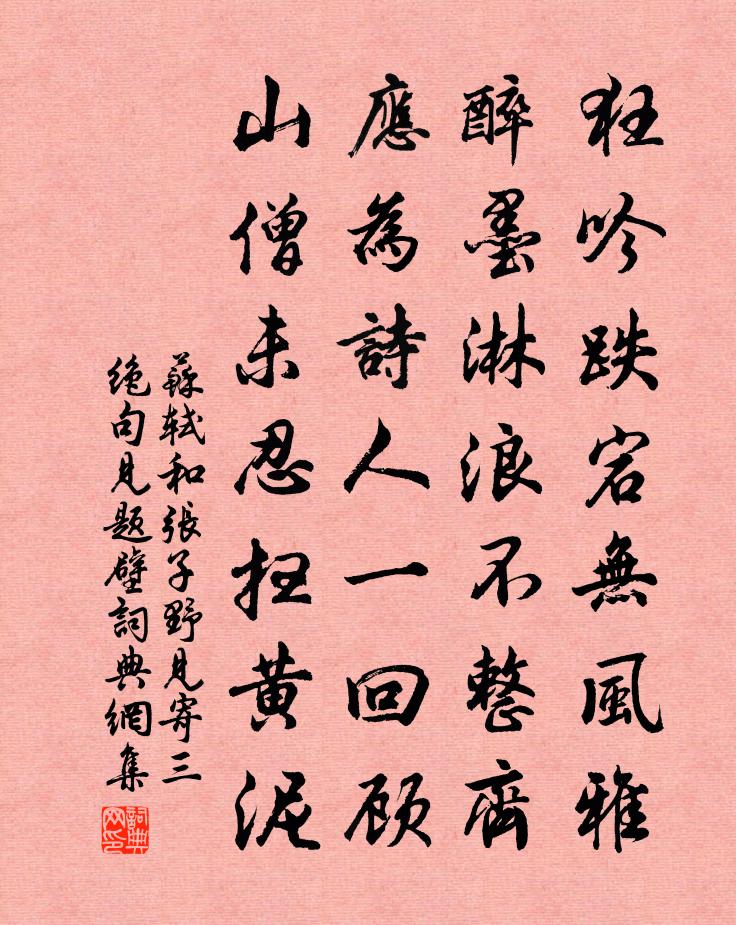 狂吟跌宕無風雅
醉墨淋浪不整齊
應為詩人一回顧
山僧未忍扫黄泥
蘇軾和張子野見寄三
絶句見题壁詞典網集
詞典网印